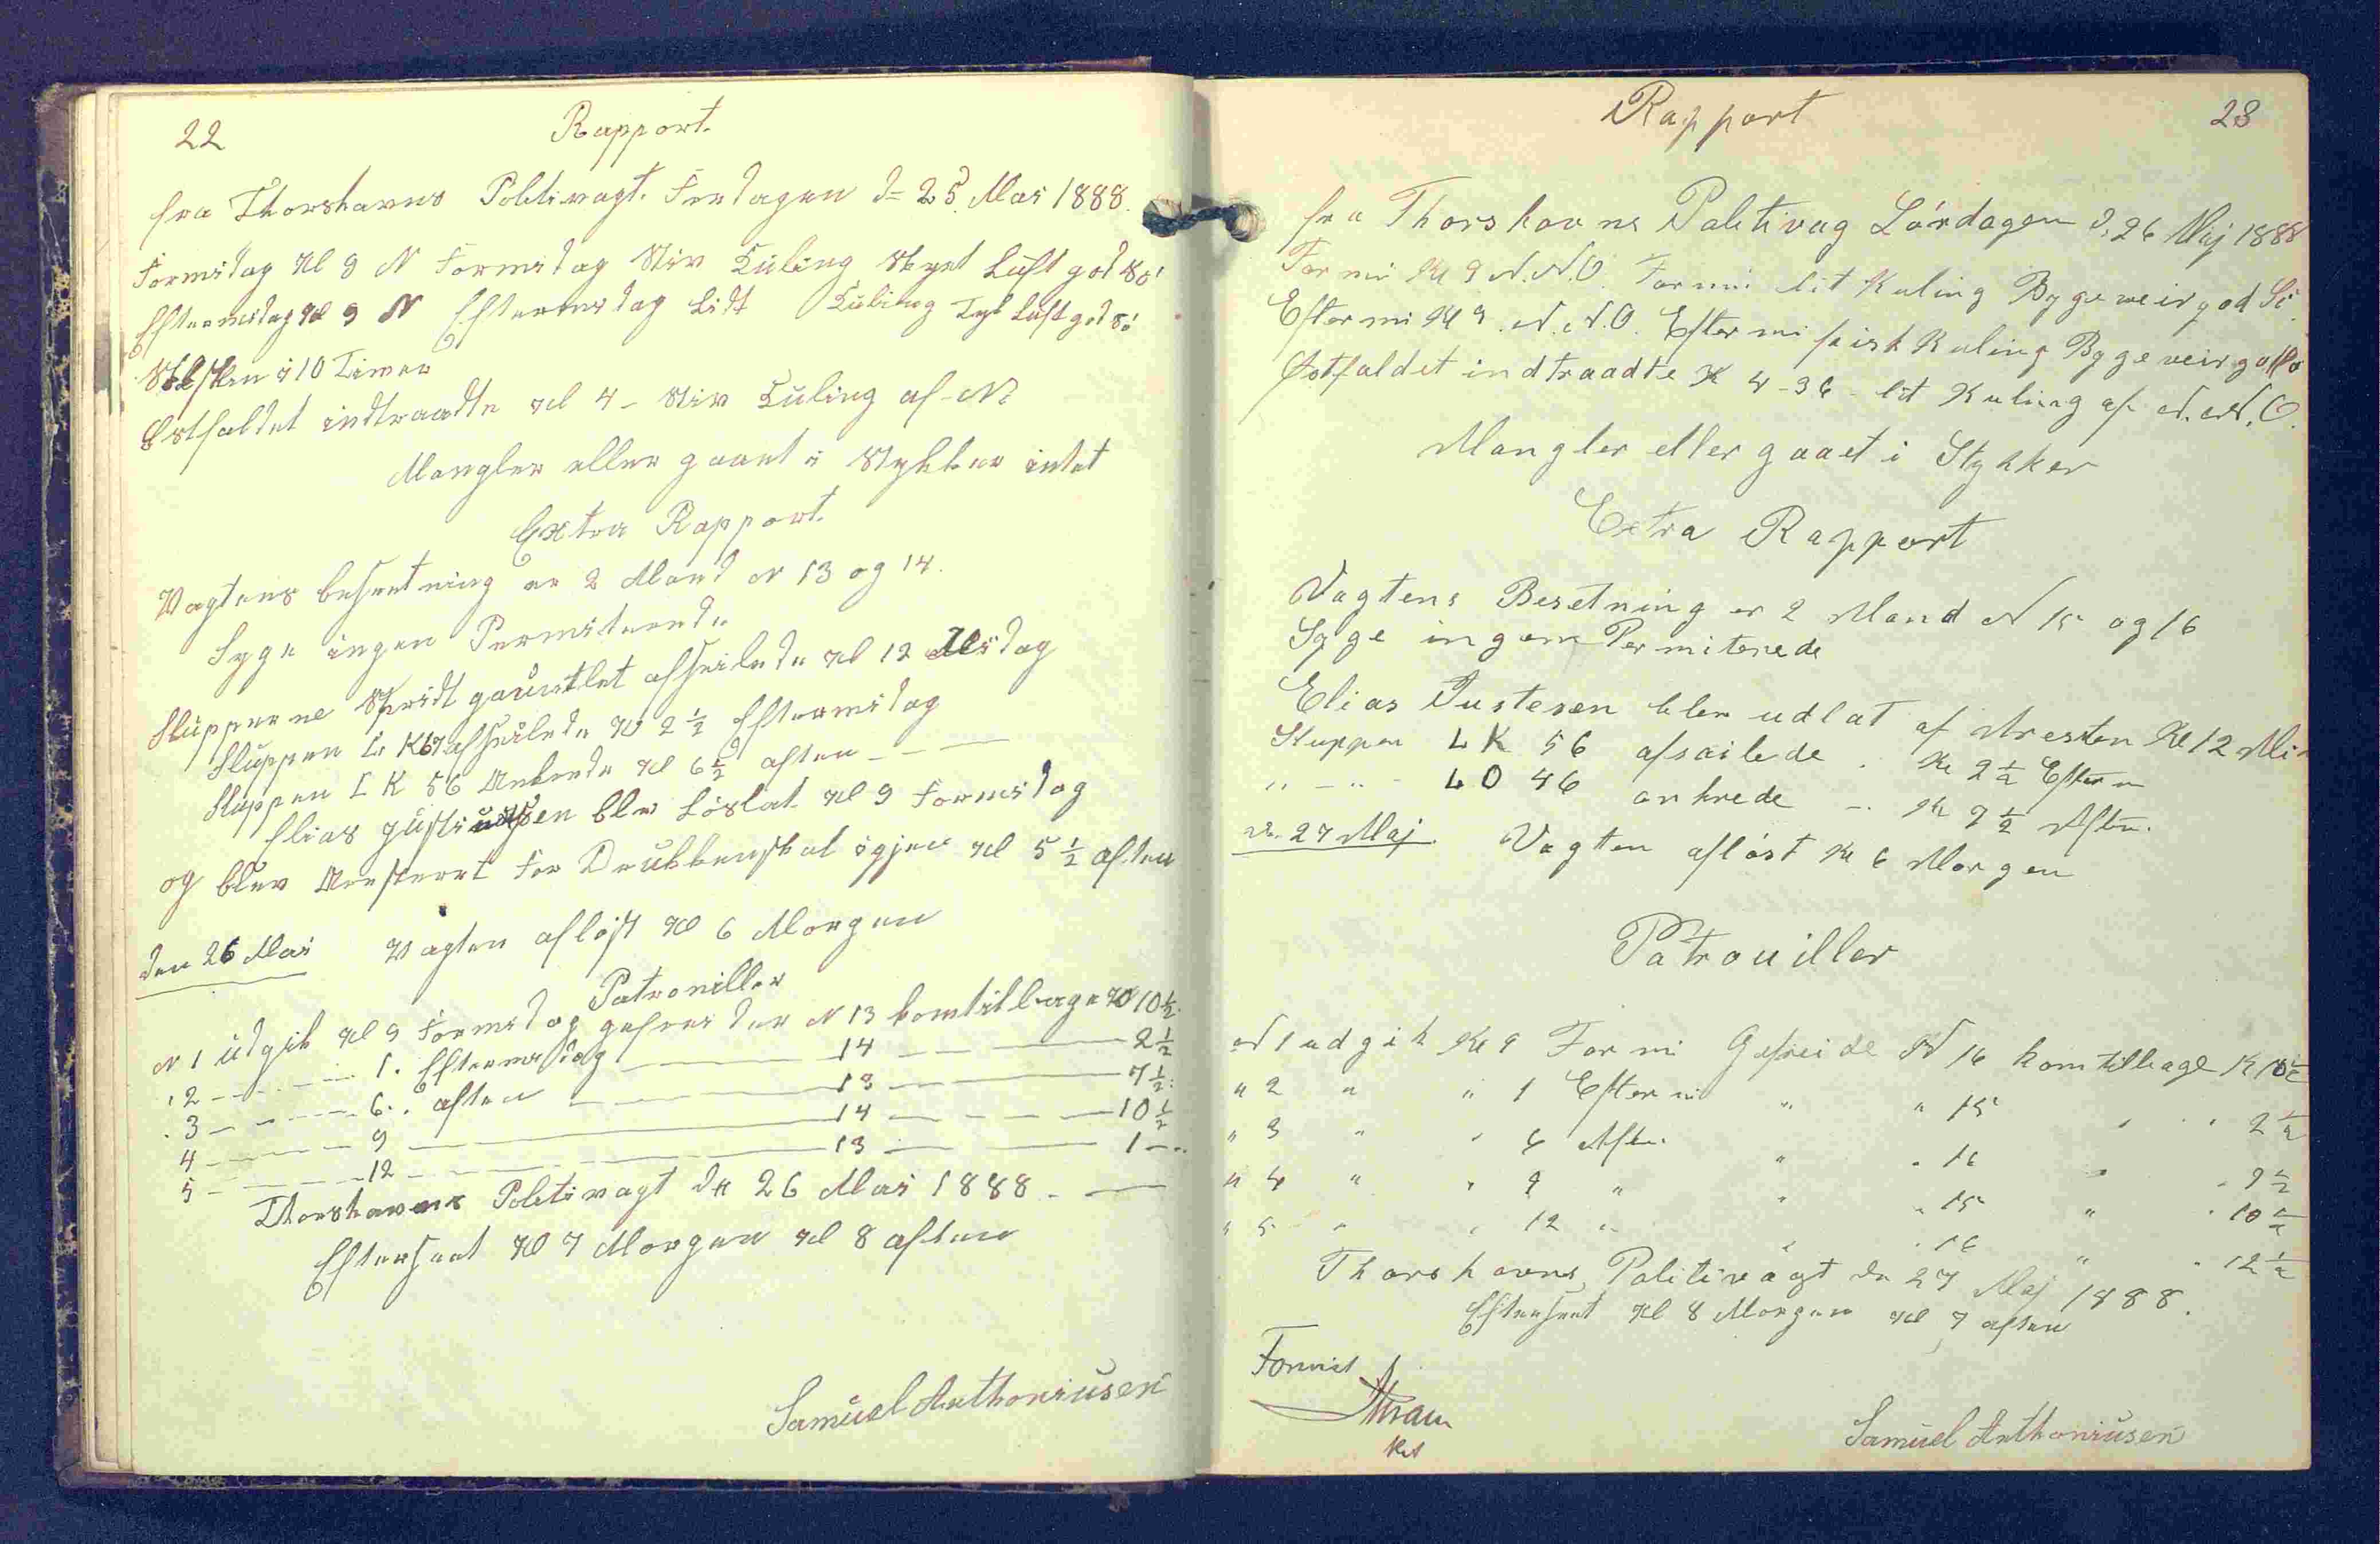 22
Rapport.
fra Thorshavns Politivagt. Fredagen d= 25. Mai 1888.
Formidag Kl 9 N Formidag Stiv Kuling Skyet Luft god Sö
Eftermidag Kl 9 N Eftermidag Lidt Kuling Tyk Luft god Sö
i 10 Timer
Östfaldet indtraadte Kl 4 - Stiv Kuling af N.
Mangler eller gaaet i Stykker intet
Extra Rapport.
Vagtens besætning er 2 Mand N 13 og 14.
Syge ingen Permiterede
Slupperne gauntlet afseilede Kl 12 Midag
Sluppen L K 67 afseilede Kl 2 1/2 Eftermidag
Sluppen L K 56 Ankrede Kl 6 1/2 aften - —
Elias blev Löslat Kl 9 Formidag
og blev Aresteret For Drukkenskab igjen Kl 5 1/2 aften
den 26 Mai Vagten aflöst Kl 6 Morgen
Patrouiller
N 1 udgik Kl 9 Formidag gefreider N 13 kom tilbage Kl 10 1/2
" 2 - - - 1. Eftermidag — 14 — 2 1/2
" 3 - - - 6. " aften — 13 — 7 1/2
4 - - - 9 — 14 - - - 10 1/2
5 - - - 12 — 13 — 1 -
Thorshavns Politivagt dn 26 Mai 1888. —
Efterseet Kl 7 Morgen Kl 8 aften
Samuel Anthoniusen
Rapport
23
fra Thorshavns Politivag Lördagen d. 26 Maj 1888
For mi Kl 9 N.N.O. For mi lit Kuling Bygeveir god Sö
Efter mi Kl 9. N.N.O. Efter mi frisk Kuling Bygeveir
Østfaldet indtraadte K 4-36 - lit Kuling af N.N.O.
Mangler eller gaaet i Stykker
Extra Rapport
Vagtens Besetning er 2 Mand N 15 og 16
Syge ingen Permiterede
Elias Justesen blev udlat af Aresten Kl 12 Mi
Sluppen L K 56 afsailede . Kl 2 1/2 Efter m
" - " - L O 46 ankrede - . Kl 9 1/2 Aften.
dn. 27 Maj. Vagten aflöst Kl 6 Morgen
Patrouiller
N 1 udgik Kl 9 For mi Gefreide N 16 kom tilbage K 10 1/2
" 2 " " 1 Efter mi " " 15 " " 2 1/2
" 3 " " 6 Aften. " " 16 " " 7 1/2
" 4 " " 9 " " " 15 " " 10 1/2
" 5 " " 12 " " " 16 " " 12 1/2
Thorshavns Politivagt dn 27 Maj 1888.
Efterseet Kl 8 Morgen Kl 7 aften
Forevist
Samuel Anthoniusen